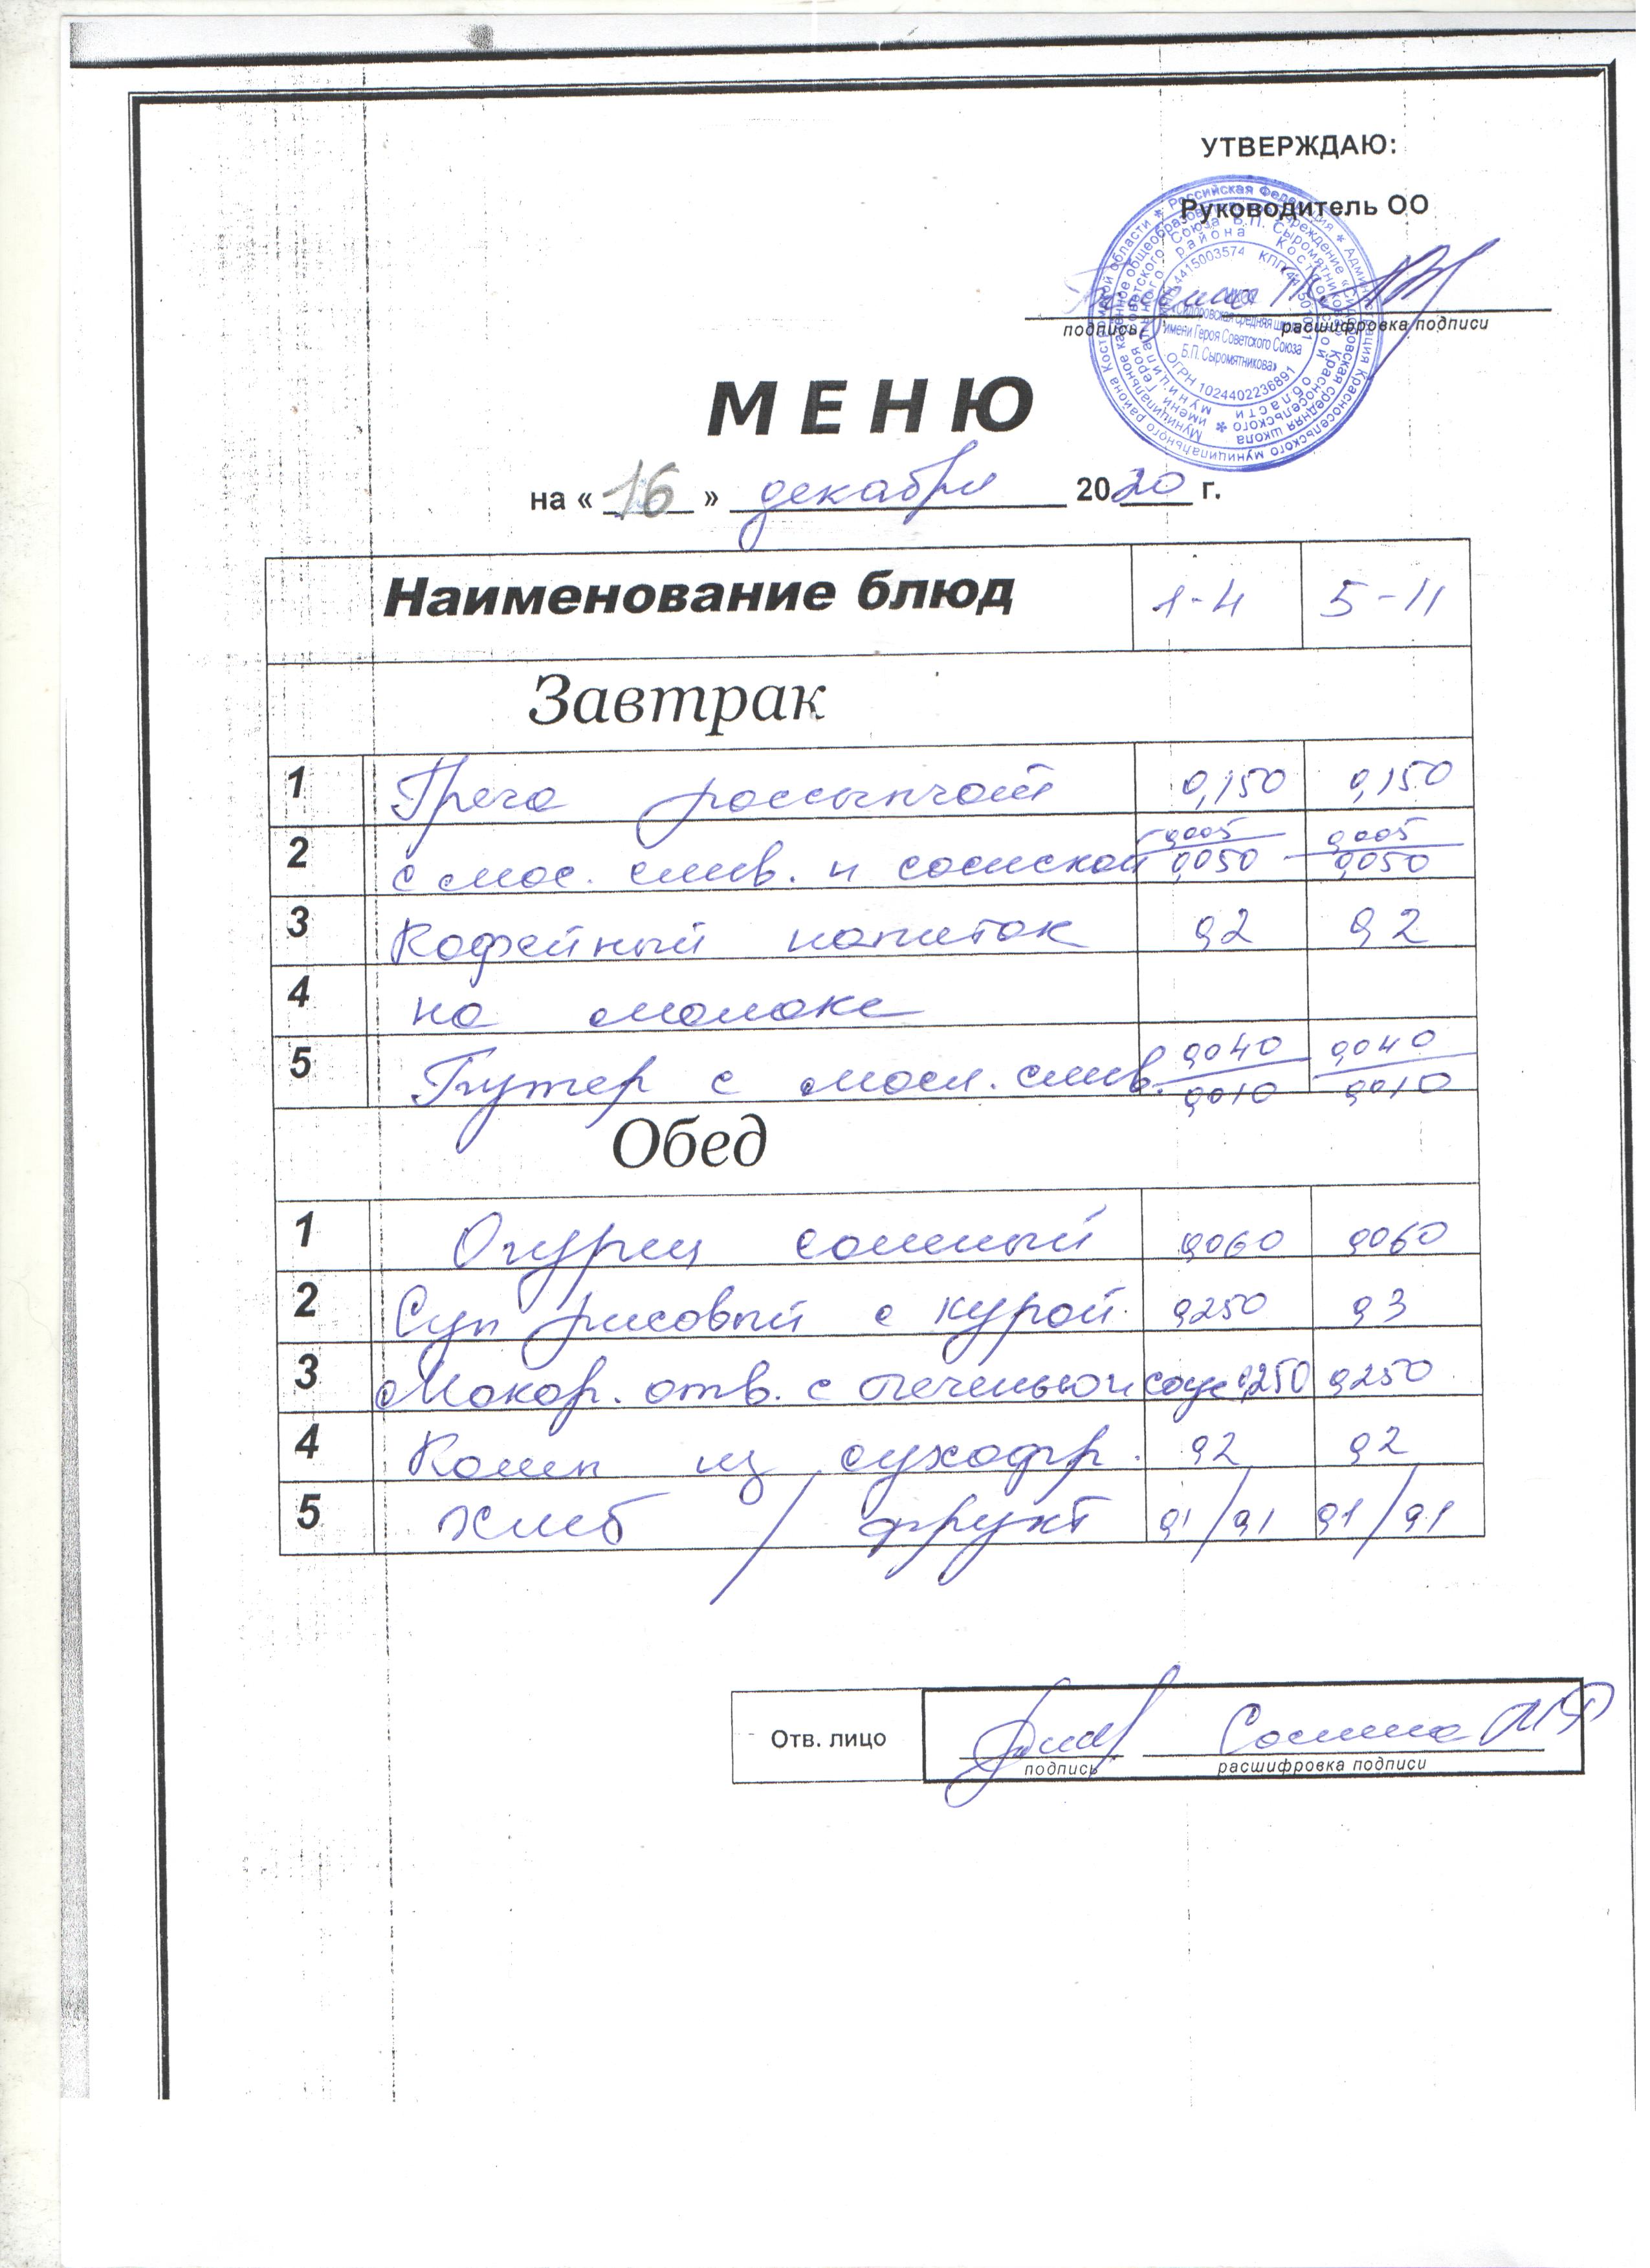 УТВЕРЖДАЮ:
Руководитель ОО
подпись расшифровка подписи
МЕНЮ
на « 16 » декабря 2020 г.
Наименование блюд 1-4 5-11
Завтрак
1 Греча рассыпчат 0,150 0,150
2 с мас. слив. и сосиской 0,005/0,050 0,005/0,050
3 Кофейный напиток 0,2 0,2
4 на молоке
5 Бутер с масл. слив. 0,040/0,010 0,040/0,010
Обед
1 Огурец соленый 0,060 0,060
2 Суп рисовый с курой 0,250 0,3
3 Макар. отв. с печенью и соус 0,250 0,250
4 Комп из сухофр. 0,2 0,2
5 Хлеб / фрукт 0,1/0,1 0,1/0,1
Отв. лицо
подпись расшифровка подписи
ИНН 4415003574 КПП 441501001
ОГРН 1024402236891
«Сидоровская средняя школа
имени Героя Советского Союза
Б.П. Сыромятникова»